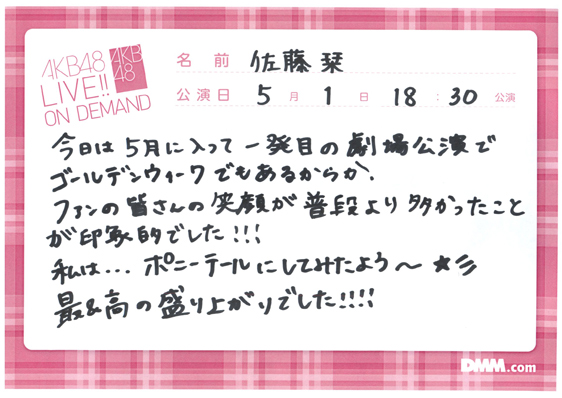 AKB48
LIVE!!
ON DEMAND
AKB
48
名前 佐藤 栞
公演日 5月1日 18:30 公演
今日は5月に入って一発目の劇場公演で
ゴールデンウィークでもあるからか、
ファンの皆さんの笑顔が普段より多かったこと
が印象的でした!!!
私は…ポニーテールにしてみたよう〜★彡
最&高の盛り上がりでした!!!!
DMM.com